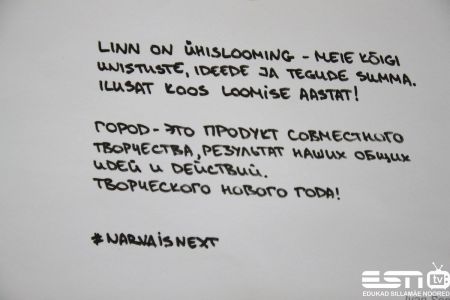 LINN ON ÜHISLOOMING - MEIE KÕIGI
UNISTUSTE, IDEEDE JA TEGUDE SUMMA.
ILUSAT KOOS LOOMISE AASTAT!
ГОРОД - ЭТО ПРОДУКТ СОВМЕСТНОГО
ТВОРЧЕСТВА, РЕЗУЛЬТАТ НАШИХ ОБЩИХ
ИДЕЙ И ДЕЙСТВИЙ.
ТВОРЧЕСКОГО НОВОГО ГОДА!
#NARVAISNEXT
ESN tv
EDUKAD SILLAMÄE NOORED